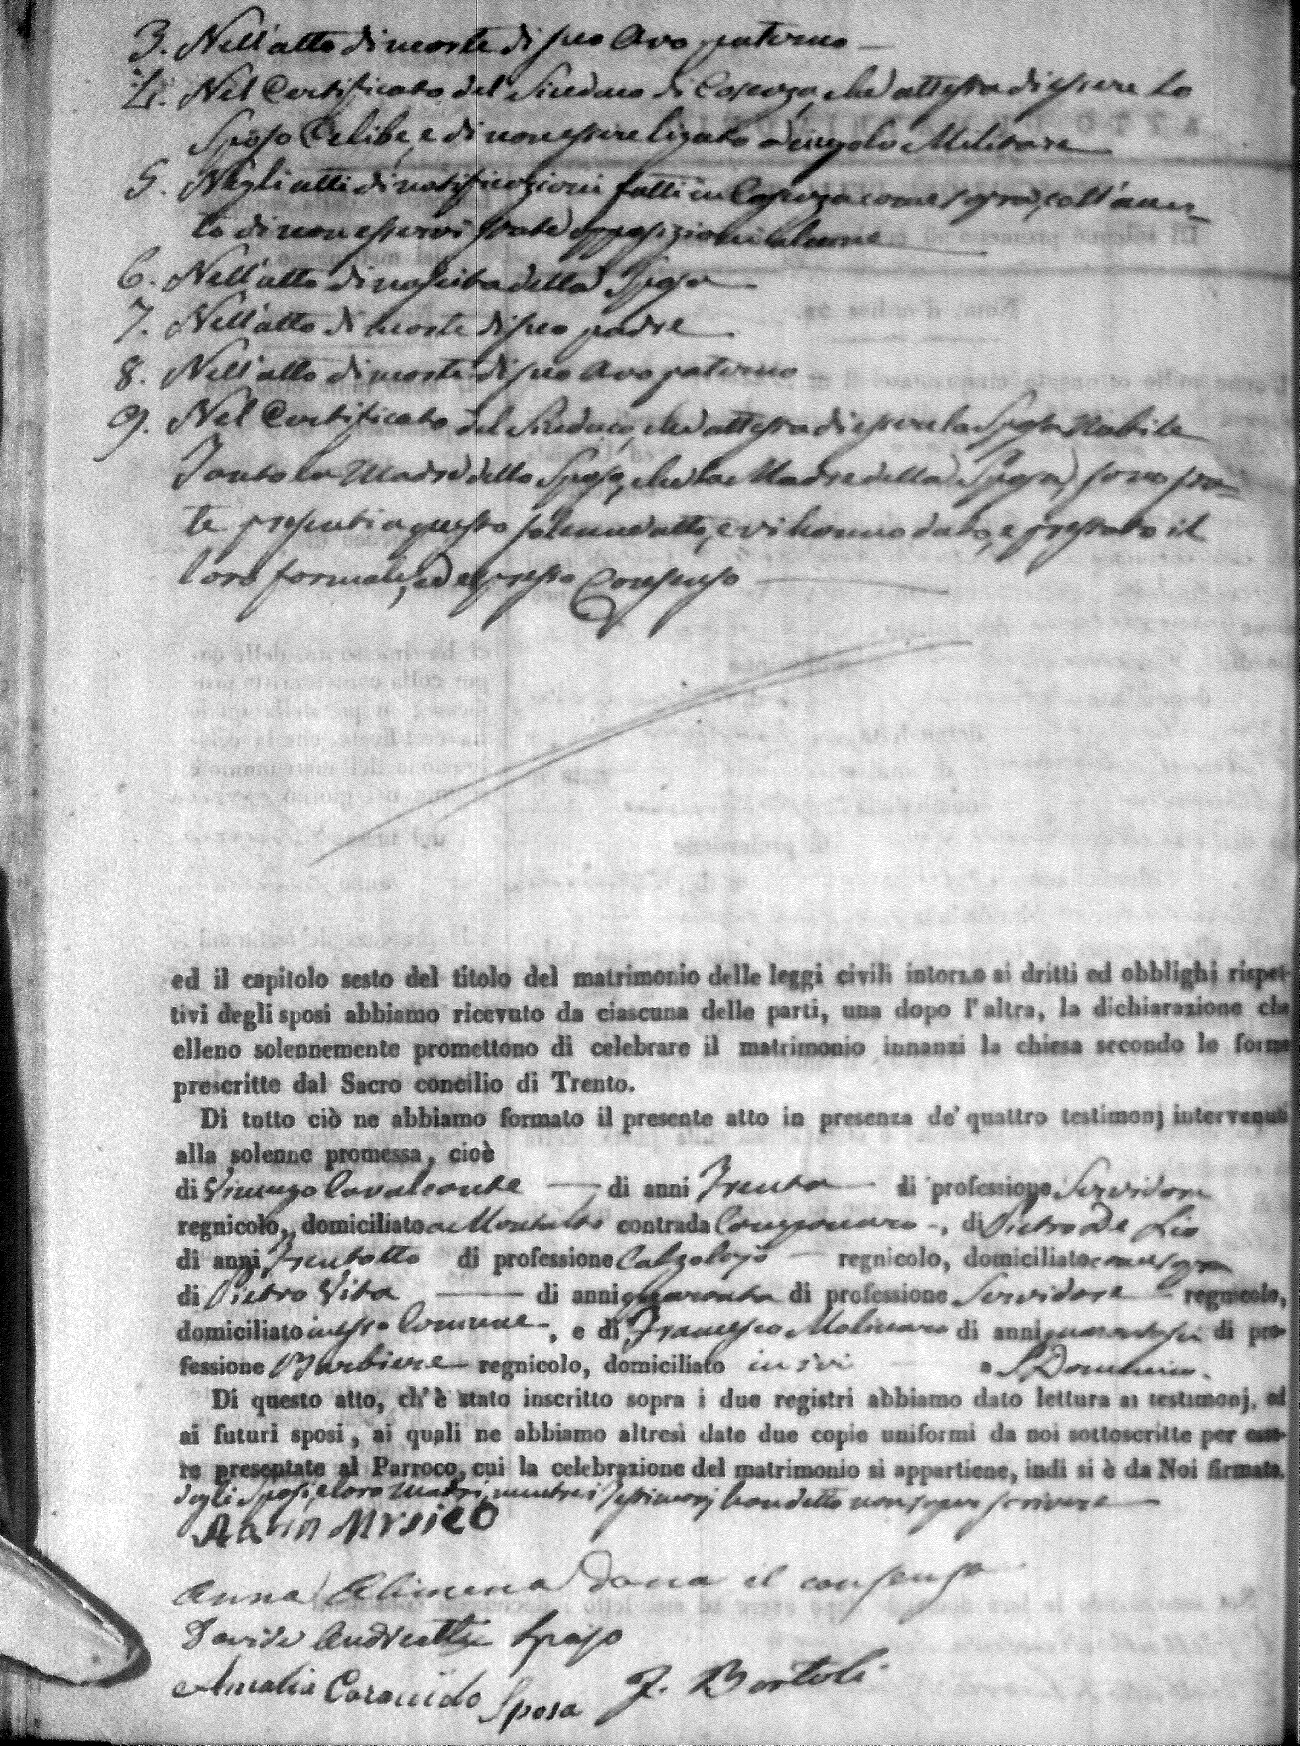 3. Nell'atto di morte di suo Avo paterno
4. Nel Certificato del Sindaco di Cosenza, che attesta di essere lo
Sposo Celibe, e di non essere ligato a vingolo Militare
5. Negli atti di notificazioni fatti in Cosenza come sopra, coll'
to di non esservi state opposizioni alcune
6. Nell'atto di nascita della Sposa
7. Nell'atto di morte di suo padre
8. Nell'atto di morte di suo Avo paterno
9. Nel Certificato del Sindaco, che attesta di essere la Sposa Nubile
Tanto la Madre dello Sposo, che la Madre della Sposa, sono sta-
te presenti a questo solenne atto, e vi hanno dato, e prestato il
loro formale, ed espresso Consenso
ed il capitolo sesto del titolo del matrimonio delle leggi civili intorno ai dritti ed obblighi rispet-
tivi degli sposi abbiamo ricevuto da ciascuna delle parti, una dopo l'altra, la dichiarazione che
elleno solennemente promettono di celebrare il matrimonio innanzi la chiesa secondo le forme
prescritte dal Sacro concilio di Trento.
Di tutto ciò ne abbiamo formato il presente atto in presenza de' quattro testimonj intervenuti
alla solenne promessa, cioè
di Vincenzo Cavalcante di anni Trenta di professione Servidore
regnicolo, domiciliato a Montalto contrada , di Pietro De Lio
di anni Trentotto di professione Calzolajo regnicolo, domiciliato come sopra
di Pietro Vita di anni quaranta di professione Servidore regnicolo,
domiciliato in esso Comune, e di Francesco Molinaro di anni quarantasei di pro-
fessione Barbiere regnicolo, domiciliato in ivi a S. Domenico.
Di questo atto, ch'è stato inscritto sopra i due registri abbiamo dato lettura ai testimonj, ed
ai futuri sposi, ai quali ne abbiamo altresì date due copie uniformi da noi sottoscritte per esse-
re presentate al Parroco, cui la celebrazione del matrimonio si appartiene, indi si è da Noi firmato.
dagli Sposi, e loro Madri, mentre i Testimonj han detto non saper scrivere
Anna Alimena dona il consenso
Davide Andreotti Sposo
Amalia Sposa F. Bartoli